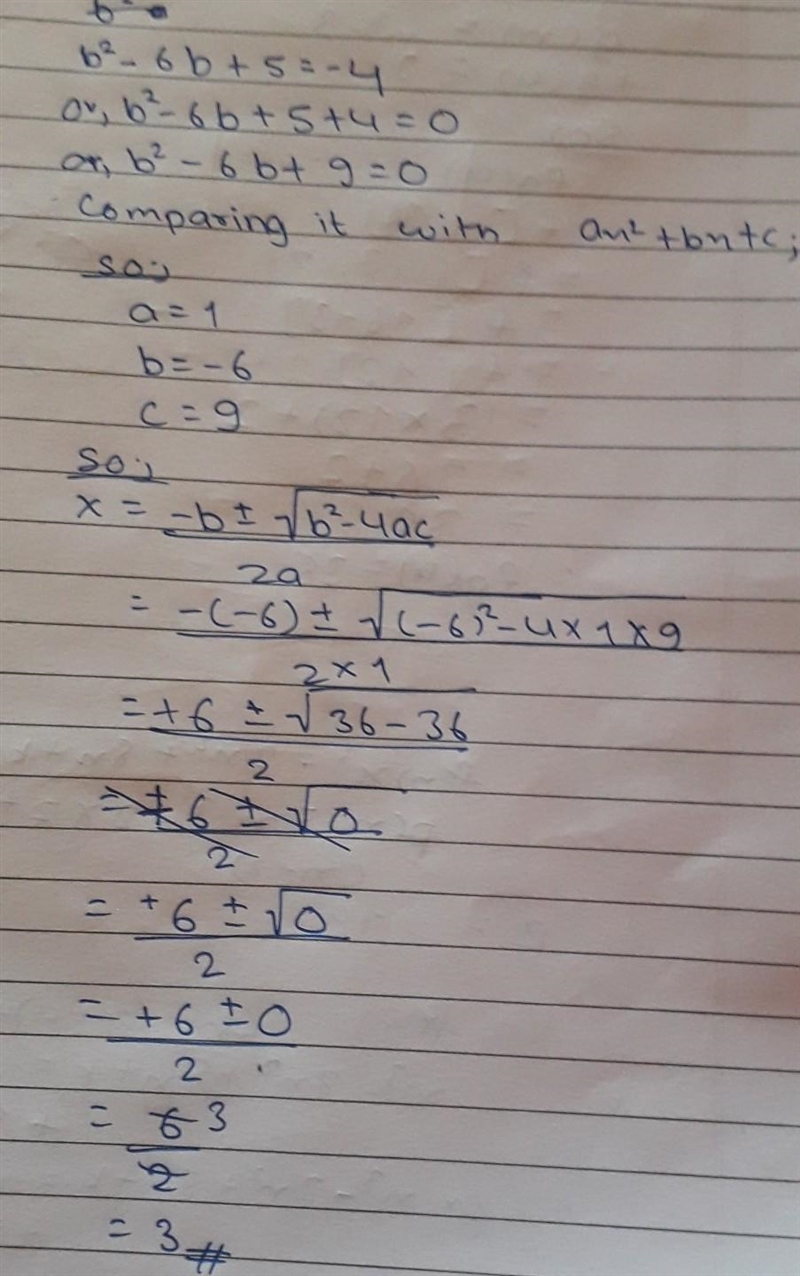 b²
b² - 6b + 5 = -4
or, b² - 6b + 5 + 4 = 0
or, b² - 6b + 9 = 0
Comparing it with ax² + bx + c;
so;
a = 1
b = -6
c = 9
so;
x = -b ± √b² - 4ac
2a
= -(-6) ± √(-6)² - 4 × 1 × 9
2 × 1
= +6 ± √36 - 36
2
= ± 6 ± √0
2
= +6 ± √0
2
= +6 ± 0
2
= 6 3
2
= 3 #